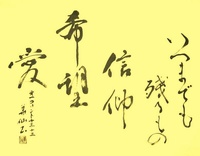 いつまでも
残るもの
信仰
希望
愛